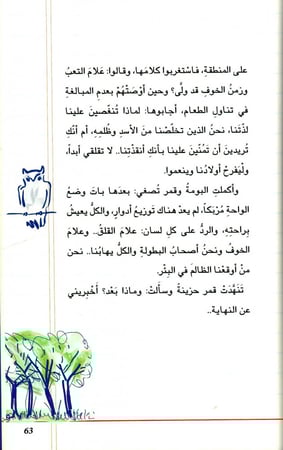 على المنطقةِ، فاستغربوا كلامَها، وقالوا: عَلامَ التعبُ
وزمنُ الخوفِ قد ولّى؟ وحين أوْصَتْهُمْ بعدمِ المبالغةِ
في تناولِ الطعام، أجابوها: لماذا تُنغّصينَ علينا
لذّتَنا، نحنُ الذين تخلّصْنا منَ الأسدِ وظُلمِهِ، أم أنّكِ
تُريدينَ أن تَمُنّينَ علينا بأنكِ أنقذْتِنا.. لا تقلقي أبداً،
ولْيَفرحْ أولادُنا وينعموا.
وأكملتِ البومةُ وقمر تُصغي: بعدَها باتَ وضعُ
الواحةِ مُرْبَكاً، لم يعدْ هناك توزيعُ أدوارٍ، والكلُّ يعيشُ
بِراحتِهِ، والردُّ على كلِ لسان: علامَ القلقُ.. وعلامَ
الخوفُ ونحنُ أصحابُ البطولةِ والكلُّ يهابُنا.. نحن
منْ أوقعْنا الظالمَ في البِئْرِ.
تَنَهَّدَتْ قمر حزينةً وسألَتْ: وماذا بَعْد؟ أَخْبريني
عن النهاية..
63